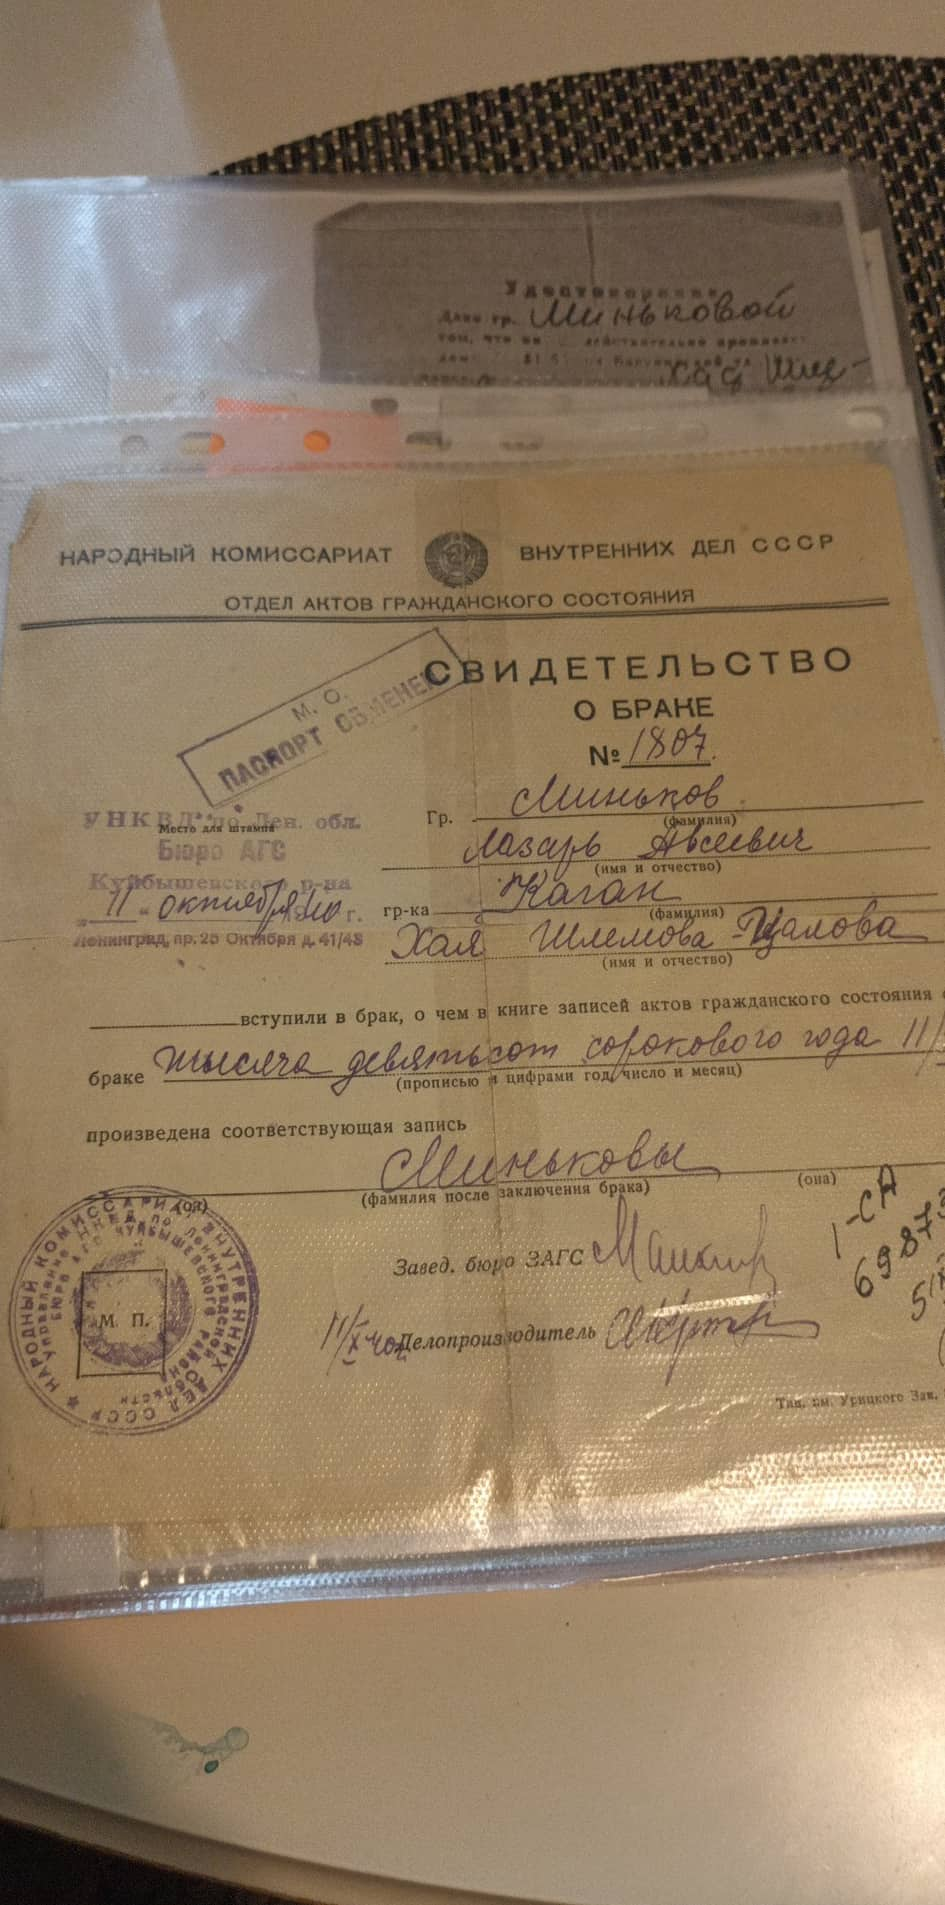 Удостоверение
Дано гр. Миньковой
том, что он действительно
Хая Шле-
НАРОДНЫЙ КОМИССАРИАТ ВНУТРЕННИХ ДЕЛ СССР
ОТДЕЛ АКТОВ ГРАЖДАНСКОГО СОСТОЯНИЯ
СВИДЕТЕЛЬСТВО
О БРАКЕ
№ 1807.
М. О.
ПАСПОРТ ОБМЕНЕН
УНКВД по Лен. обл.
Место для штампа
Бюро АГС
Куйбышевского р-на
"11" октября 1940 г.
Ленинград, пр. 25 Октября д. 41/43
Гр. Миньков
(фамилия)
Лазарь Авсеевич
(имя и отчество)
гр-ка Каган
(фамилия)
Хая Шлемова-Цалова
(имя и отчество)
вступили в брак, о чем в книге записей актов гражданского состояния о
браке тысяча девятьсот сорокового года 11/
(прописью и цифрами год, число и месяц)
произведена соответствующая запись
Миньковы
(он) (фамилия после заключения брака) (она)
Завед. бюро ЗАГС
11/X-40г. Делопроизводитель
М. П.
НАРОДНЫЙ КОМИССАРИАТ ВНУТРЕННИХ ДЕЛ СССР
Управление НКВД по Ленинградской области
БЮРО АГС КУЙБЫШЕВСКОГО РАЙОНА
1-СА
69873
Тип. им. Урицкого Зак.